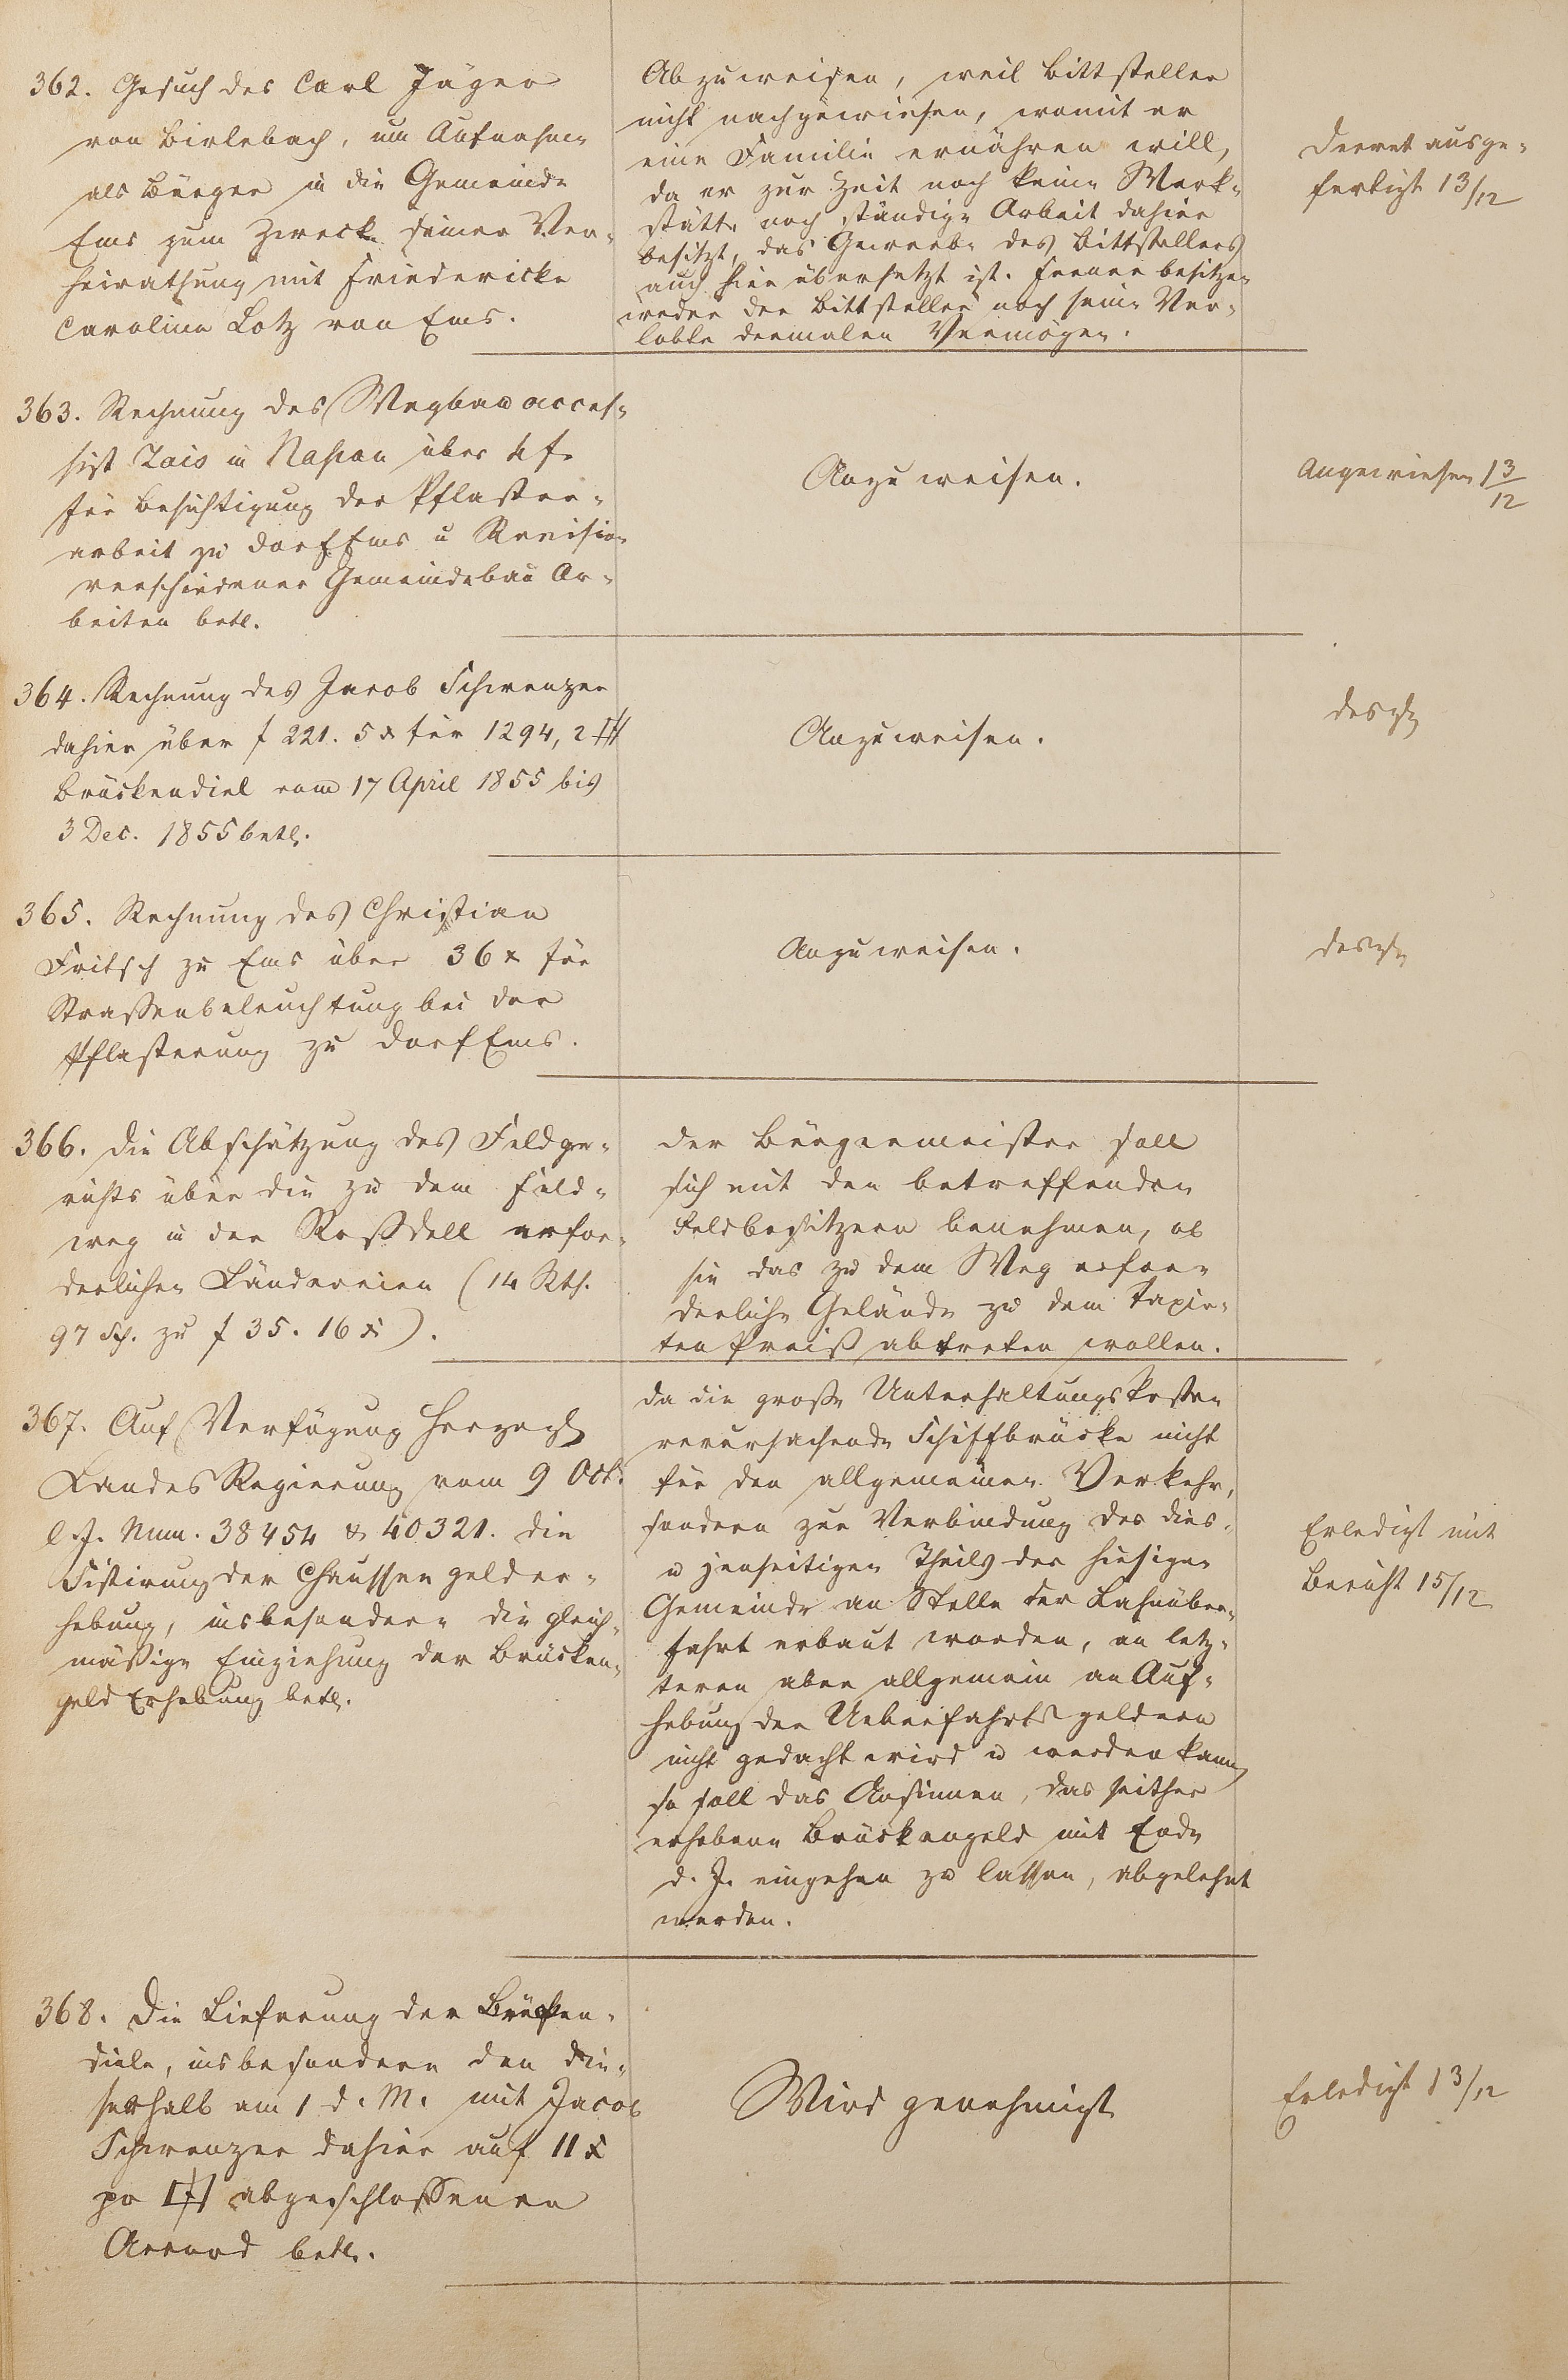 362. Gesuch des Carl Jäger
von Birlebach, um Aufnahme
als Bürger in die Gemeinde
Ems zum Zwecke seiner Ver-
heirathung mit Friedericke
Caroline Lotz von Ems.
Abzuweisen, weil Bittsteller
nicht nachgewiesen, womit er
eine Familie ernähren will,
da er zur Zeit noch keine Werk-
stätte noch ständige Arbeit dahier
besitzt, das Gewerbe des Bittstellers
auch hier übersetzt ist. Ferner besitzen
weder der Bittsteller noch seine Ver-
lobte dermalen Vermögen.
Decret ausge-
fertigt 13/12
363. Rechnung des Wegbauacces-
sist Zais in Nassau über 4 f.
für Besichtigung der Pflaster-
arbeit zu Dorf Ems u Revision
verschiedener Gemeindebau Ar-
beiten betr.
Anzuweisen.
Angewiesen 13/12
364. Rechnung des Jacob Schwenzer
dahier über f 221. 5 x für 1294,2 □'
Brückendiel vom 17 April 1855 bis
3 Dec. 1855 betr.
Anzuweisen.
desgl.
365. Rechnung des Christian
Fritsch zu Ems über 36 x für
Strassenbeleuchtung bei der
Pflasterung zu Dorf Ems.
Anzuweisen.
desgl.
366. Die Abschätzung des Feldge-
richts über die zu dem Feld-
weg in der Roßdell erfor-
derlichen Ländereien (14 Rth.
97 Sch. zu f 35. 16 x).
Der Bürgermeister soll
sich mit den betreffenden
Feldbesitzern benehmen, ob
sie das zu dem Weg erfor-
derliche Gelände zu dem taxir-
ten Preiß abtreten wollen.
367. Auf Verfügung Herzogl.
Landes Regierung vom 9 Oct.
l. J. Num. 38454 & 40321. die
Sistirung der Chausseegelder-
hebung, insbesondere die gleich-
mäßige Einziehung der Brücken-
geld Erhebung betr.
Da die große Unterhaltungskosten
verursachende Schiffbrücke nicht
für den allgemeinen Verkehr,
sondern zur Verbindung des dies-
u jenseitigen Theils der hiesigen
Gemeinde an Stelle der Lahnüber-
fahrt erbaut worden, an letz-
teren aber allgemein an Auf-
hebung der Ueberfahrtsgeldern
nicht gedacht wird u werden kann,
so soll das Ansinnen, das seither
erhobene Brückengeld mit Ende
d. J. eingehen zu lassen, abgelehnt
werden.
Erledigt mit
Bericht 15/12
368. Die Lieferung der Brücken-
diele, insbesondere den die-
serhalb am 1 d. M. mit Jacob
Schwenzer dahier auf 11 x
pr □' abgeschlossenen
Accord betr.
Wird genehmigt
Erledigt 13/12